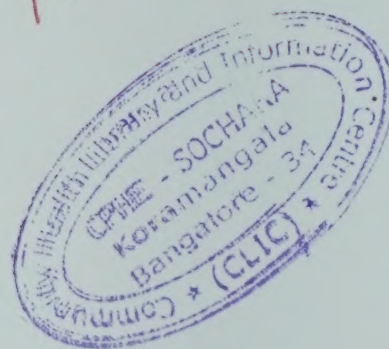 Community Health Library and Information Centre
(CLIC)
CPHE - SOCHARA
Koramangala
Bangalore - 34